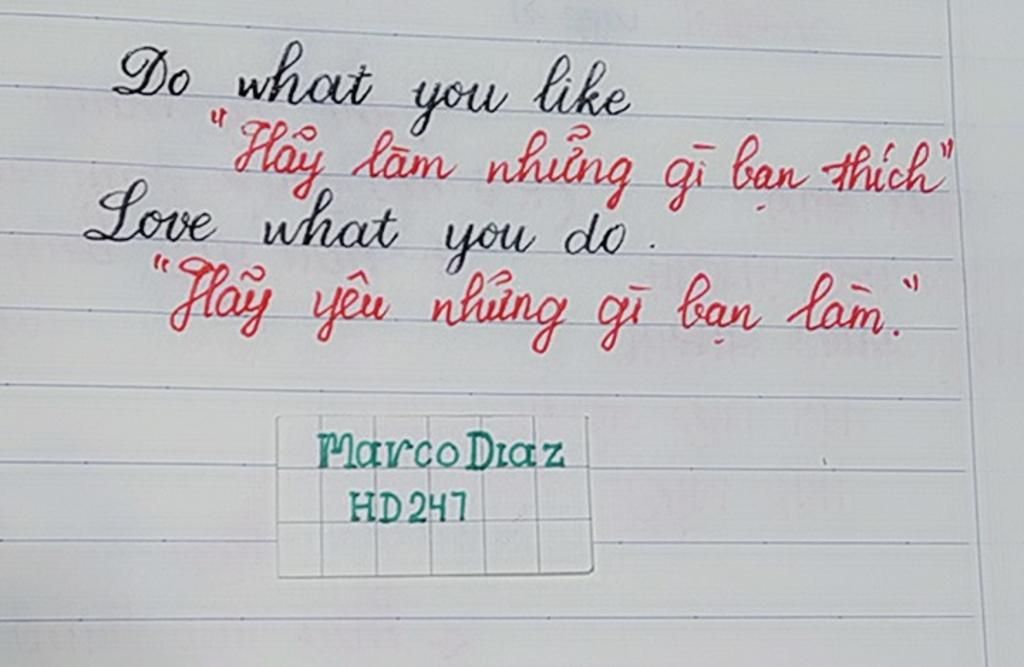 Do what you like
"Hãy làm những gì bạn thích"
Love what you do.
"Hãy yêu những gì bạn làm."
MarcoDiaz
HD247